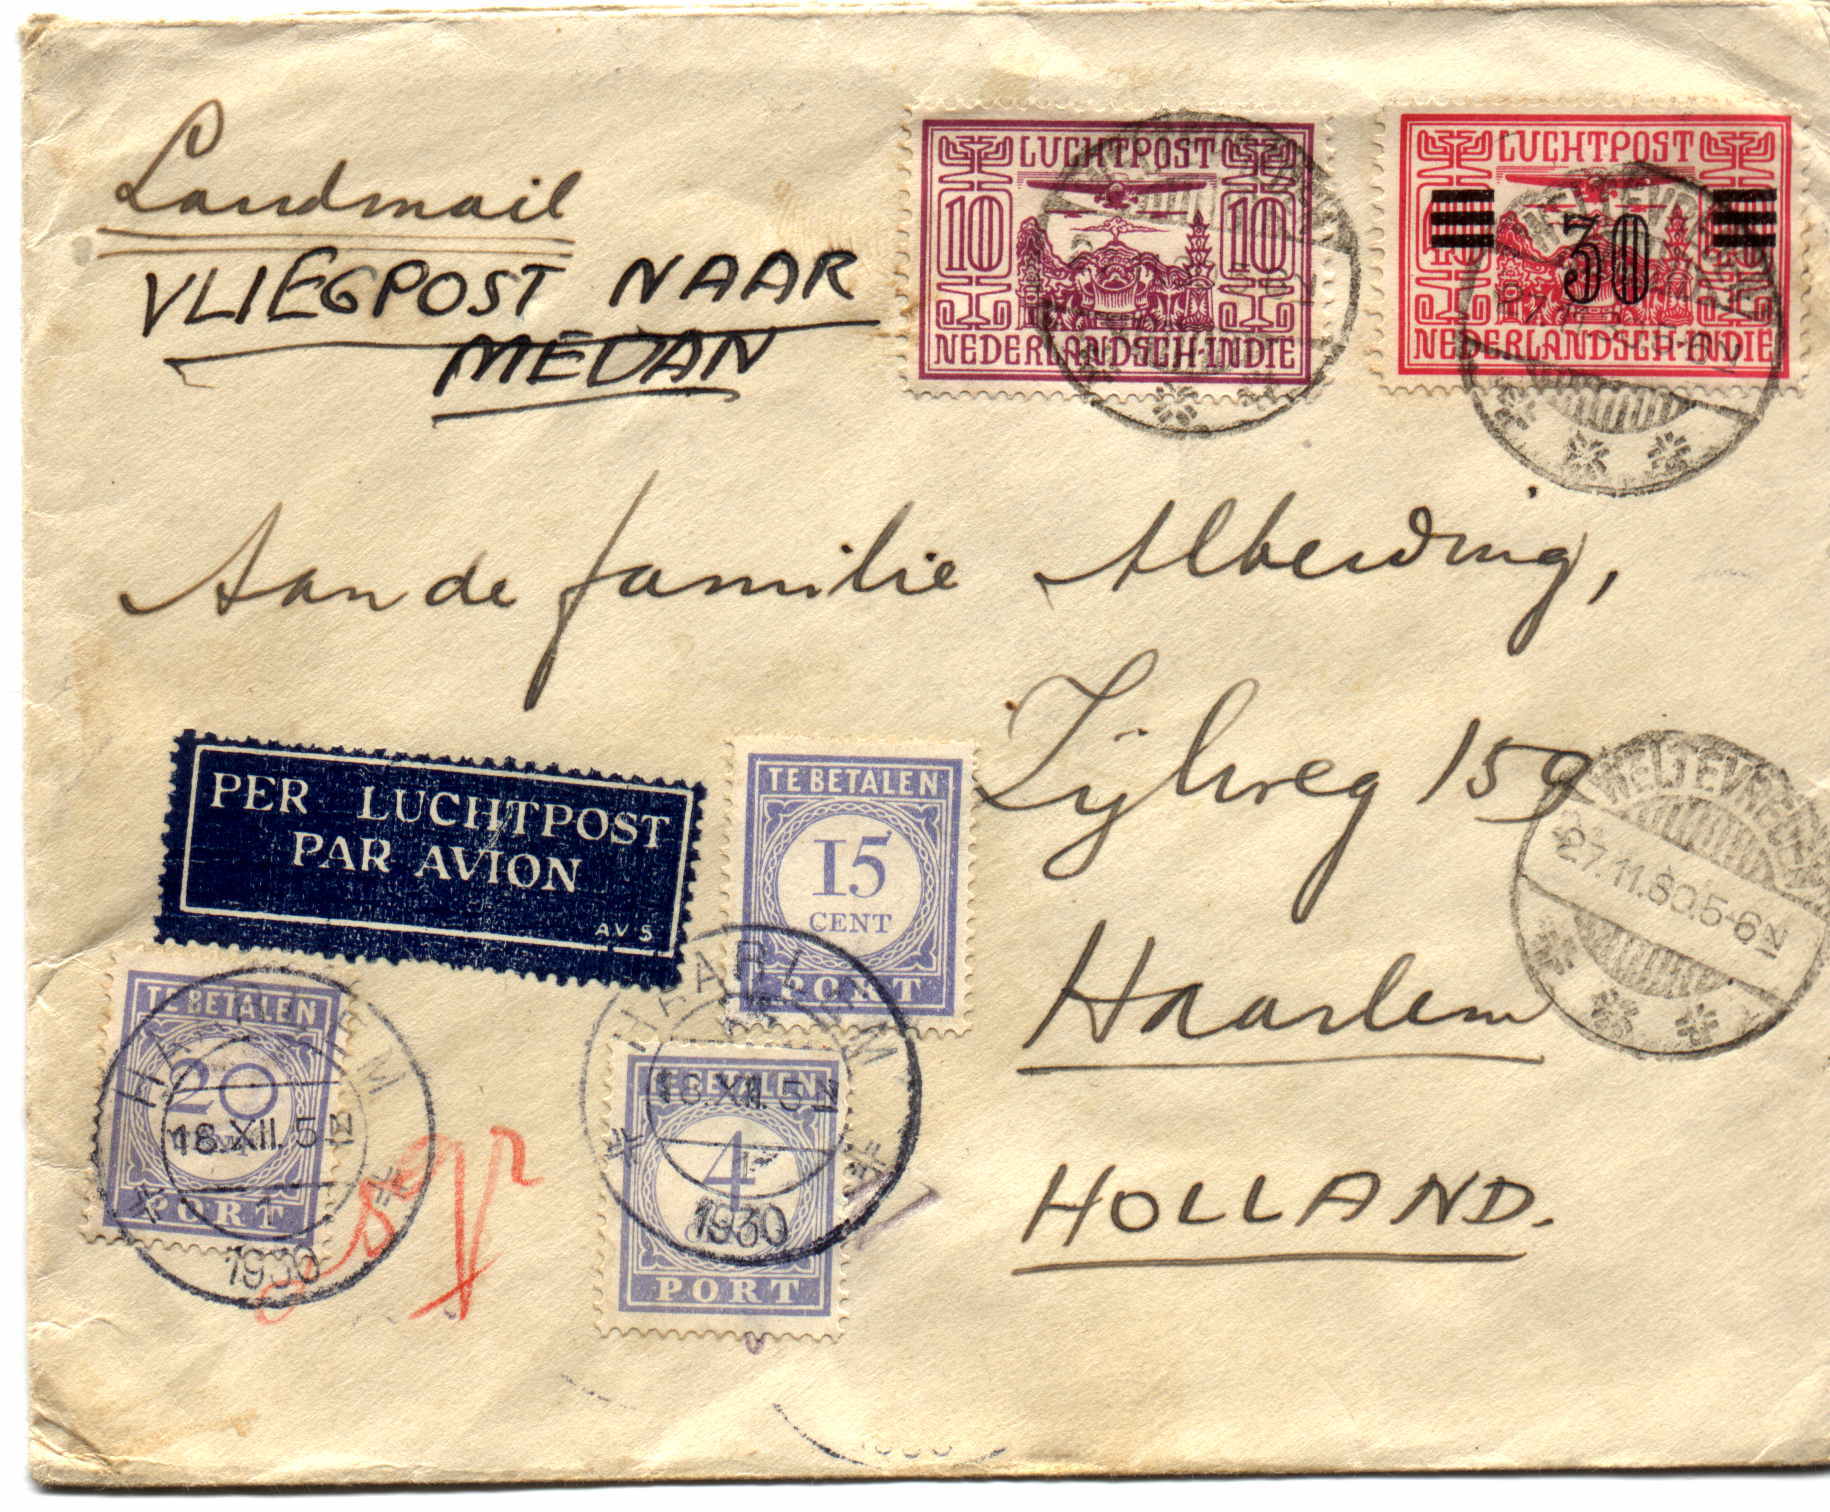 Landmail
VLIEGPOST NAAR
MEDAN
LUCHTPOST
10 10
NEDERLANDSCH-INDIE
LUCHTPOST
30
NEDERLANDSCH-INDIE
WELTEVREDEN
27.11.30.5-6N
Aan de familie Alberding,
Zijlweg 159
Haarlem
HOLLAND.
WELTEVREDEN
27.11.30.5-6N
PER LUCHTPOST
PAR AVION
AV 5
TE BETALEN
15
CENT
PORT
TE BETALEN
20
PORT
HAARLEM
18.XII.5N
1
1930
TE BETALEN
4
PORT
HAARLEM
18.XII.5N
1930